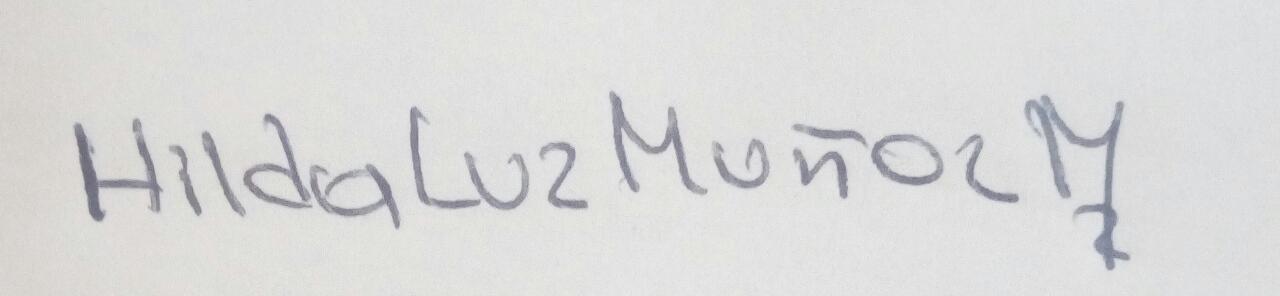 Hilda Luz Muñoz M